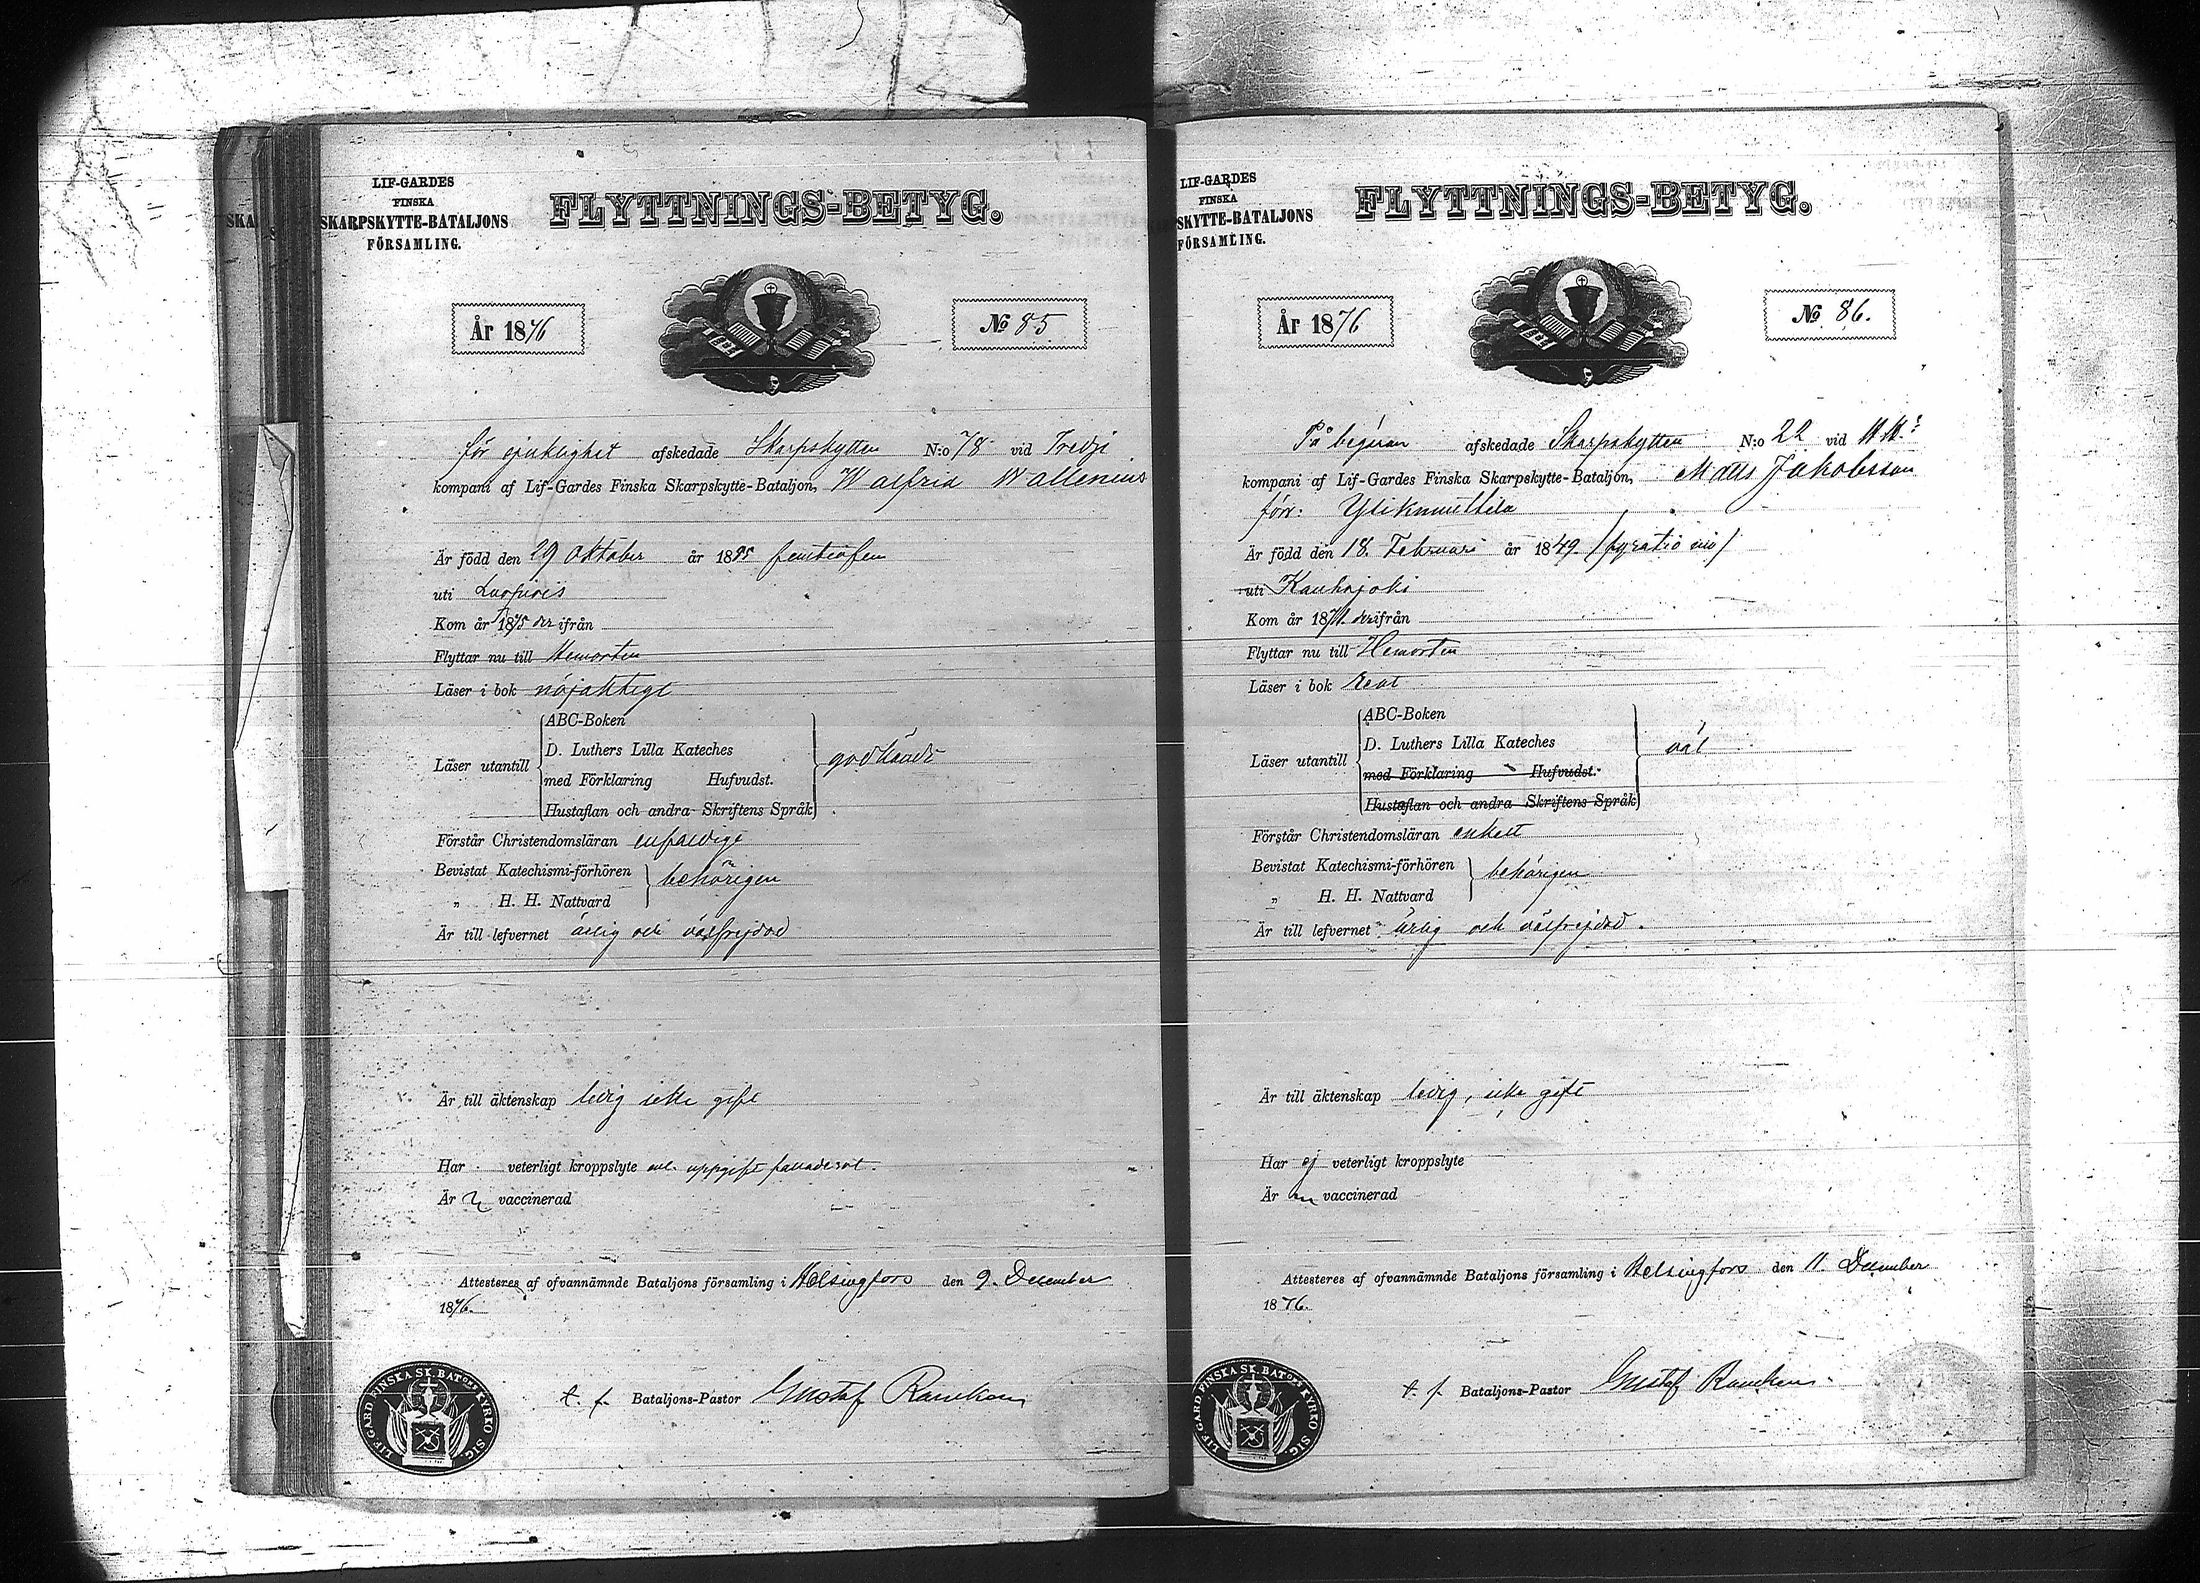 LIF-GARDES
FINSKA
SKARPSKYTTE-BATALJONS
FÖRSAMLING.
FLYTTNINGS-BETYG.
År 1876
№ 85
för sjuklighet afskedade Skarpskytten N:o 78 vid Tredje
kompani af Lif-Gardes Finska Skarpskytte-Bataljon, Walfrid Wallenius
Är född den 29 Oktober år 1855 femtiofem
uti
Kom år 1875 derifrån
Flyttar nu till Hemorten
Läser i bok nöjaktigt
ABC-Boken
D. Luthers Lilla Kateches
Läser utantill
med Förklaring Hufvudst.
godkändt
Hustaflan och andra Skriftens Språk
Förstår Christendomsläran enfaldigt
Bevistat Katechismi-förhören
behörigen
„ H. H. Nattvard
Är till lefvernet ärlig och välfrejdad
Är till äktenskap ledig icke gift
Har veterligt kroppslyte enl. uppgift fallandesot.
Är vaccinerad
Attesteres af ofvannämnde Bataljons församling i Helsingfors den 9. December
1876.
t. f. Bataljons-Pastor Gustaf Rancken
LIF-GARD FINSKA SK. BAT:ONS KYRKO SIG.
LIF-GARDES
FINSKA
SKYTTE-BATALJONS
FÖRSAMLING.
FLYTTNINGS-BETYG.
År 1876
№ 86.
På begäran afskedade Skarpskytten N:o 22 vid
kompani af Lif-Gardes Finska Skarpskytte-Bataljon, Matts Jakobsson
förr: Yliknuuttila
Är född den 18. Februari år 1849. /fyratio nio/
uti Kauhajoki
Kom år 1871. derifrån
Flyttar nu till Hemorten
Läser i bok rent
ABC-Boken
D. Luthers Lilla Kateches
Läser utantill
med Förklaring Hufvudst.
väl
Hustaflan och andra Skriftens Språk
Förstår Christendomsläran enkelt
Bevistat Katechismi-förhören
behörigen
„ H. H. Nattvard
Är till lefvernet ärlig och välfrejdad.
Är till äktenskap ledig, icke gift
Har ej veterligt kroppslyte
Är vaccinerad
Attesteres af ofvannämnde Bataljons församling i Helsingfors den 11. December
1876.
t. f. Bataljons-Pastor Gustaf Rancken
LIF-GARD FINSKA SK. BAT:ONS KYRKO SIG.